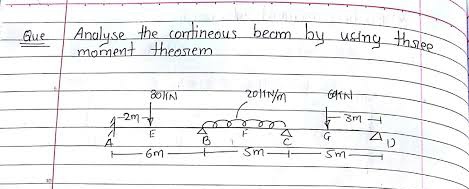 Que Analyse the contineous beam by using three
moment theorem
80KN 20KN/m 60KN
2m 3m
A E B F C G D
6m 5m 5m